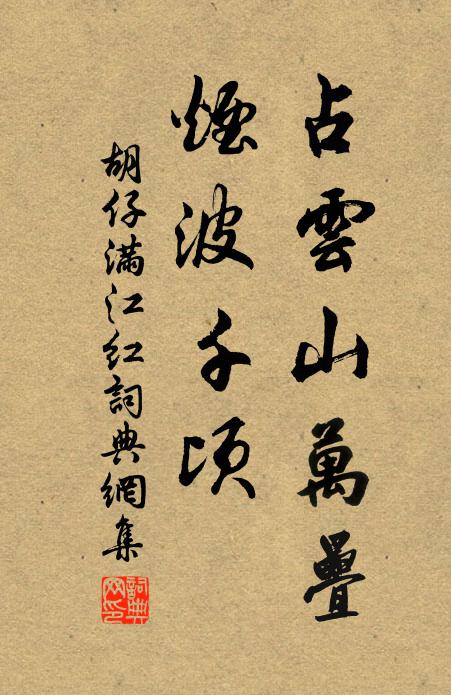 占雲山萬疊
煙波千頃
胡仔滿江红詞典網集
詞典
网印